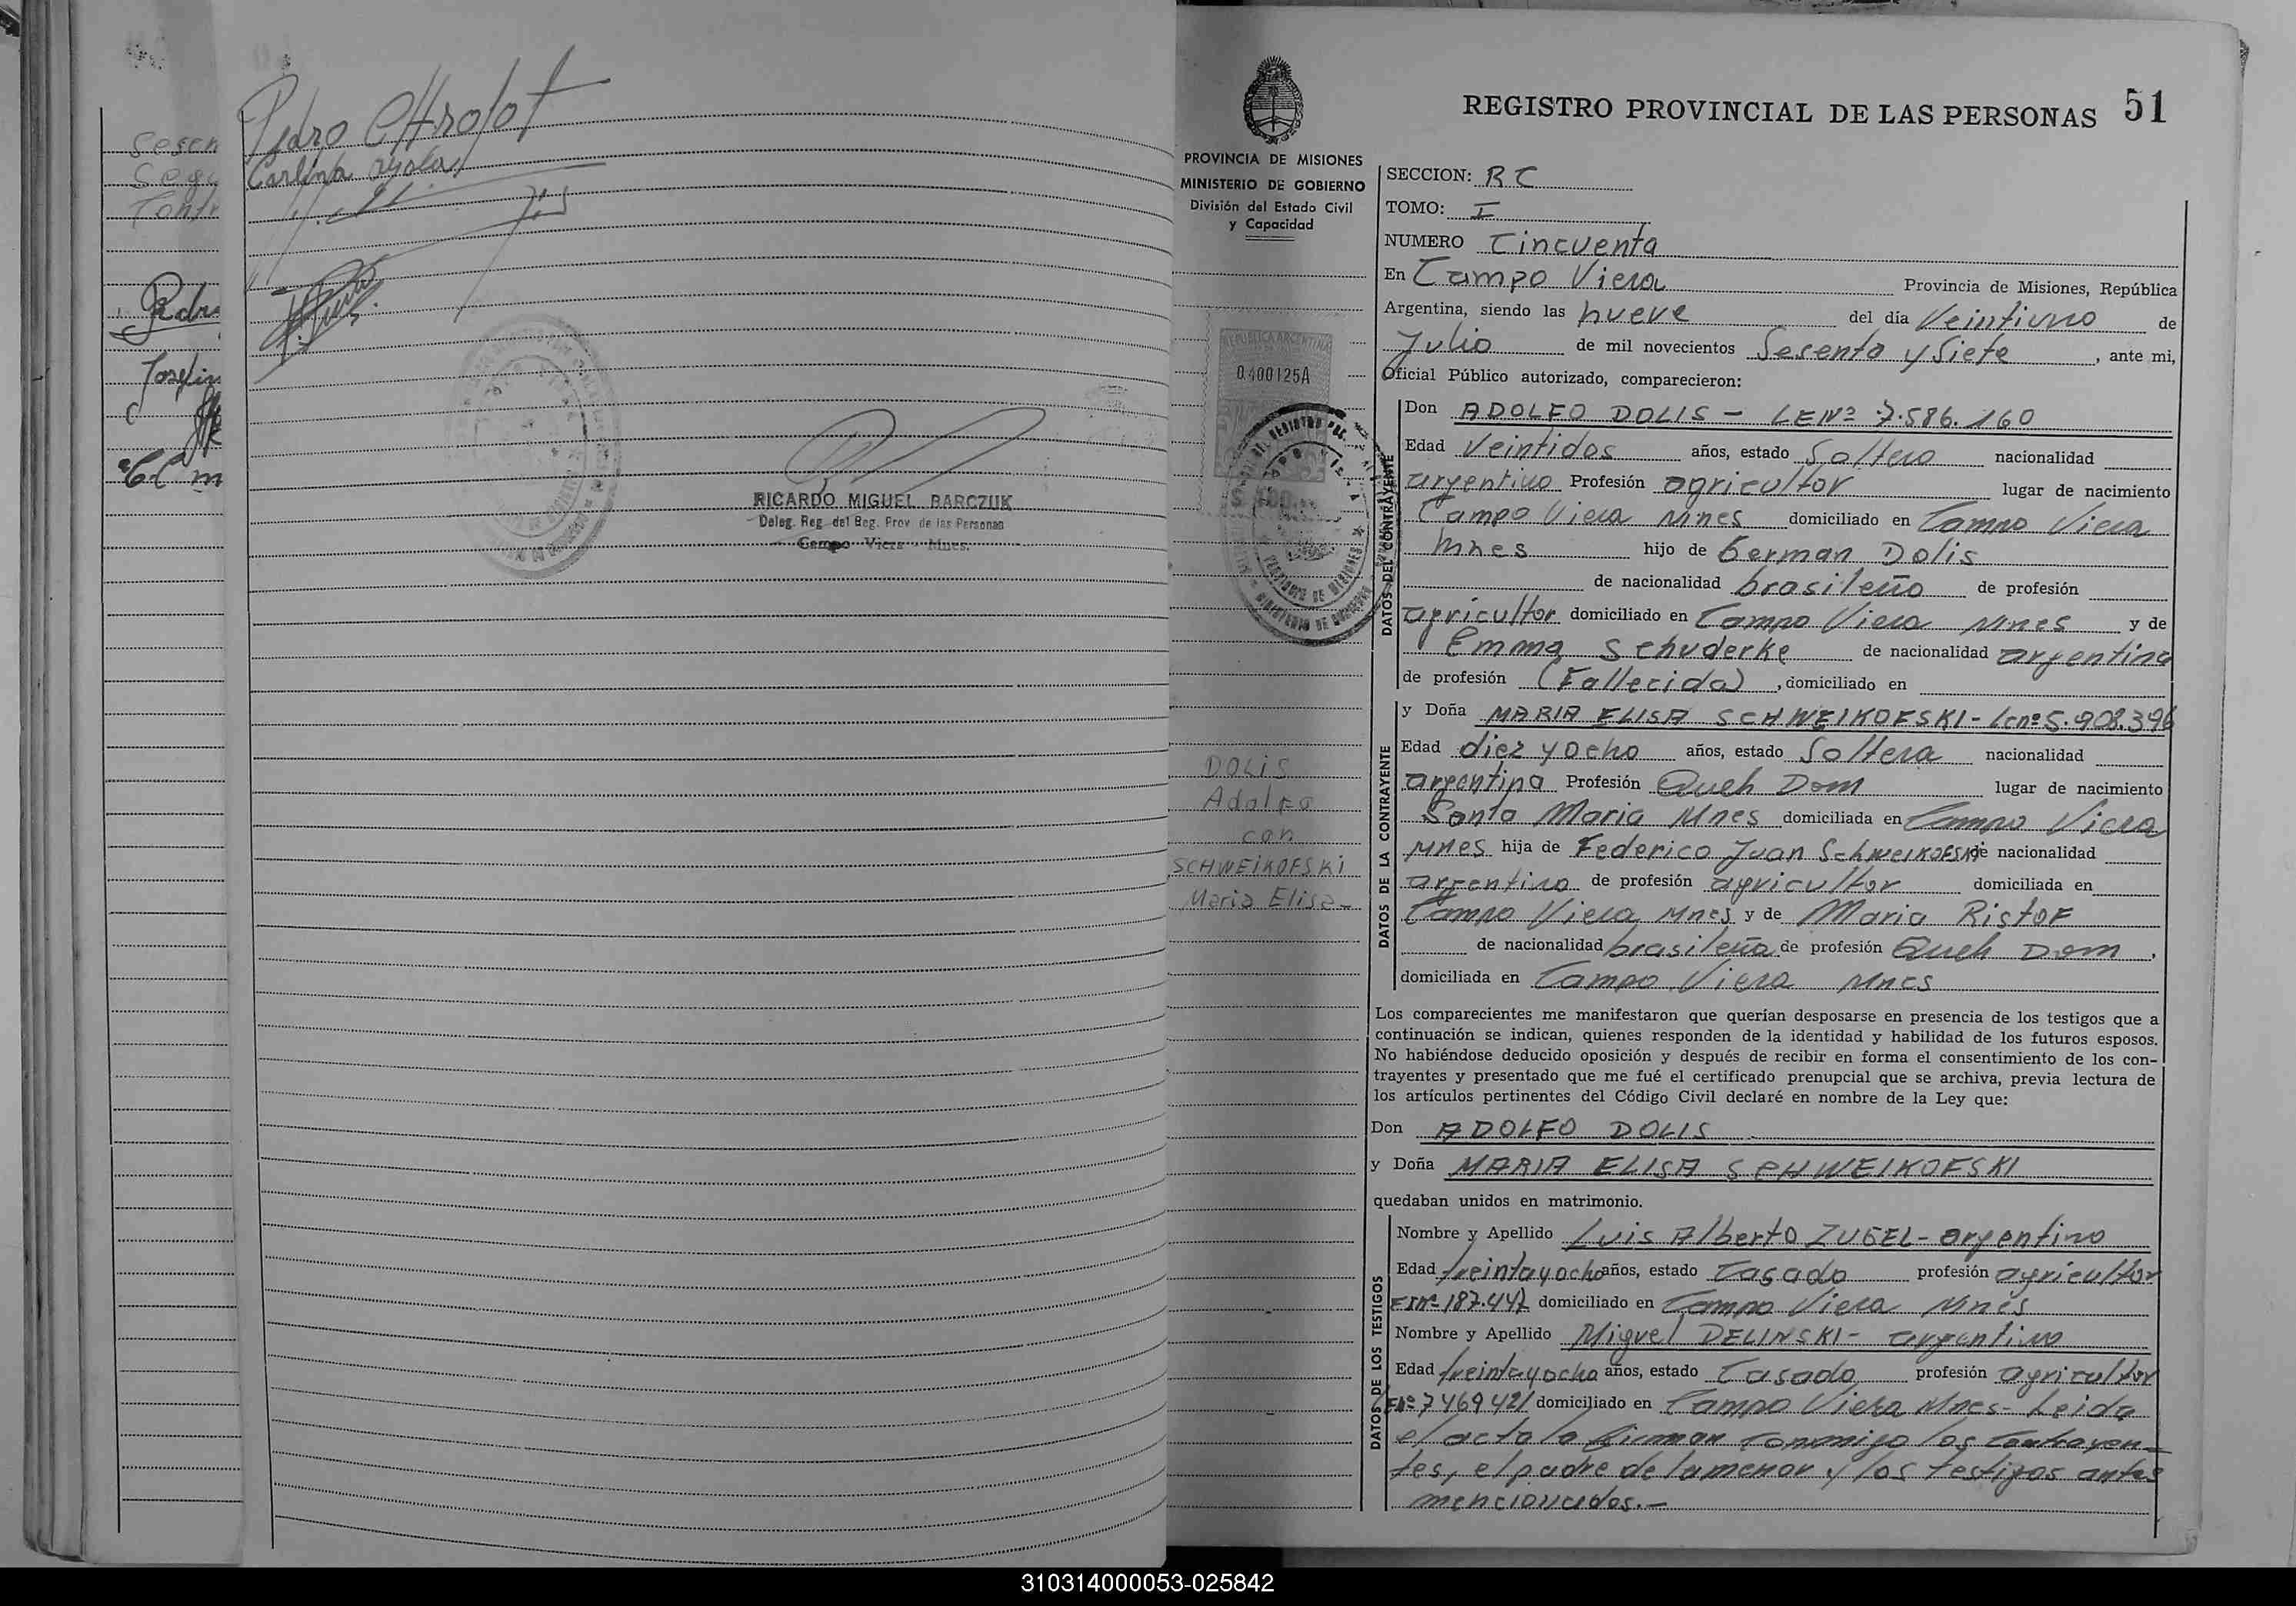 Sesen
Segu
Contr
Pedro
Josefin
Pedro
Carlina Ayala
RICARDO MIGUEL BARCZUK
Deleg. Reg. del Reg. Prov. de las Personas
Campo Viera - Mnes.
REGISTRO PROVINCIAL DE LAS PERSONAS 51
PROVINCIA DE MISIONES
MINISTERIO DE GOBIERNO
División del Estado Civil
y Capacidad
REPUBLICA ARGENTINA
0.400125A
DOLIS
Adolfo
con
SCHWEIKOFSKI
Maria Elisa-
SECCION: RC
TOMO: I
NUMERO Cincuenta
En Campo Viera Provincia de Misiones, República
Argentina, siendo las nueve del día Veintiuno de
Julio de mil novecientos Sesenta y Siete, ante mi,
Oficial Público autorizado, comparecieron:
DATOS DEL CONTRAYENTE
Don ADOLFO DOLIS - LENº 7.586.160
Edad Veintidos años, estado Soltero nacionalidad
argentino Profesión agricultor lugar de nacimiento
Campo Viera Mnes domiciliado en Campo Viera
Mnes hijo de German Dolis
de nacionalidad brasileño de profesión
agricultor domiciliado en Campo Viera Mnes y de
Emma Schuderke de nacionalidad argentina
de profesión (Fallecida), domiciliado en
DATOS DE LA CONTRAYENTE
y Doña MARIA ELISA SCHWEIKOFSKI - Lcnº 5.908.396
Edad diez y ocho años, estado Soltera nacionalidad
argentina Profesión Queh Dom lugar de nacimiento
Santa Maria Mnes domiciliada en Campo Viera
Mnes hija de Federico Juan Schweikofski de nacionalidad
argentino de profesión agricultor domiciliada en
Campo Viera Mnes y de Maria Ristof
de nacionalidad brasileña de profesión Queh Dom,
domiciliada en Campo Viera Mnes
Los comparecientes me manifestaron que querían desposarse en presencia de los testigos que a
continuación se indican, quienes responden de la identidad y habilidad de los futuros esposos.
No habiéndose deducido oposición y después de recibir en forma el consentimiento de los con-
trayentes y presentado que me fué el certificado prenupcial que se archiva, previa lectura de
los artículos pertinentes del Código Civil declaré en nombre de la Ley que:
Don ADOLFO DOLIS
y Doña MARIA ELISA SCHWEIKOFSKI
quedaban unidos en matrimonio.
DATOS DE LOS TESTIGOS
Nombre y Apellido Luis Alberto ZUGEL - argentino
Edad treintayocho años, estado Casado profesión agricultor
187.447 domiciliado en Campo Viera Mnes
Nombre y Apellido Miguel DELINSKI - argentino
Edad treintayocho años, estado Casado profesión agricultor
7469421 domiciliado en Campo Viera Mnes - Leida
el acta la firman conmigo los contrayen-
tes, el padre de la menor y los testigos antes
mencionados.-
310314000053-025842